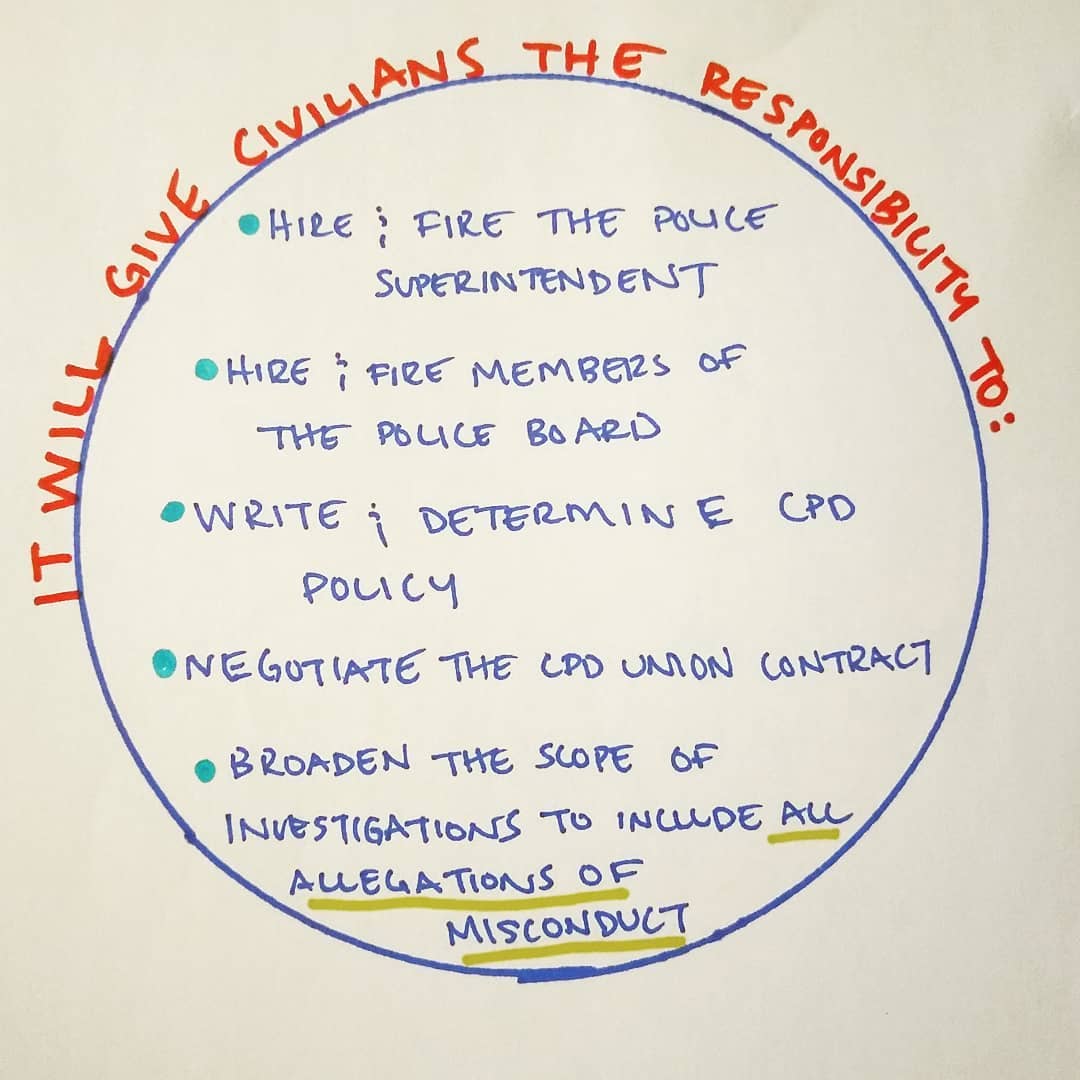 IT WILL GIVE CIVILIANS THE RESPONSIBILITY TO:
• HIRE & FIRE THE POLICE
SUPERINTENDENT
• HIRE & FIRE MEMBERS OF
THE POLICE BOARD
• WRITE & DETERMINE CPD
POLICY
• NEGOTIATE THE CPD UNION CONTRACT
• BROADEN THE SCOPE OF
INVESTIGATIONS TO INCLUDE ALL
ALLEGATIONS OF
MISCONDUCT